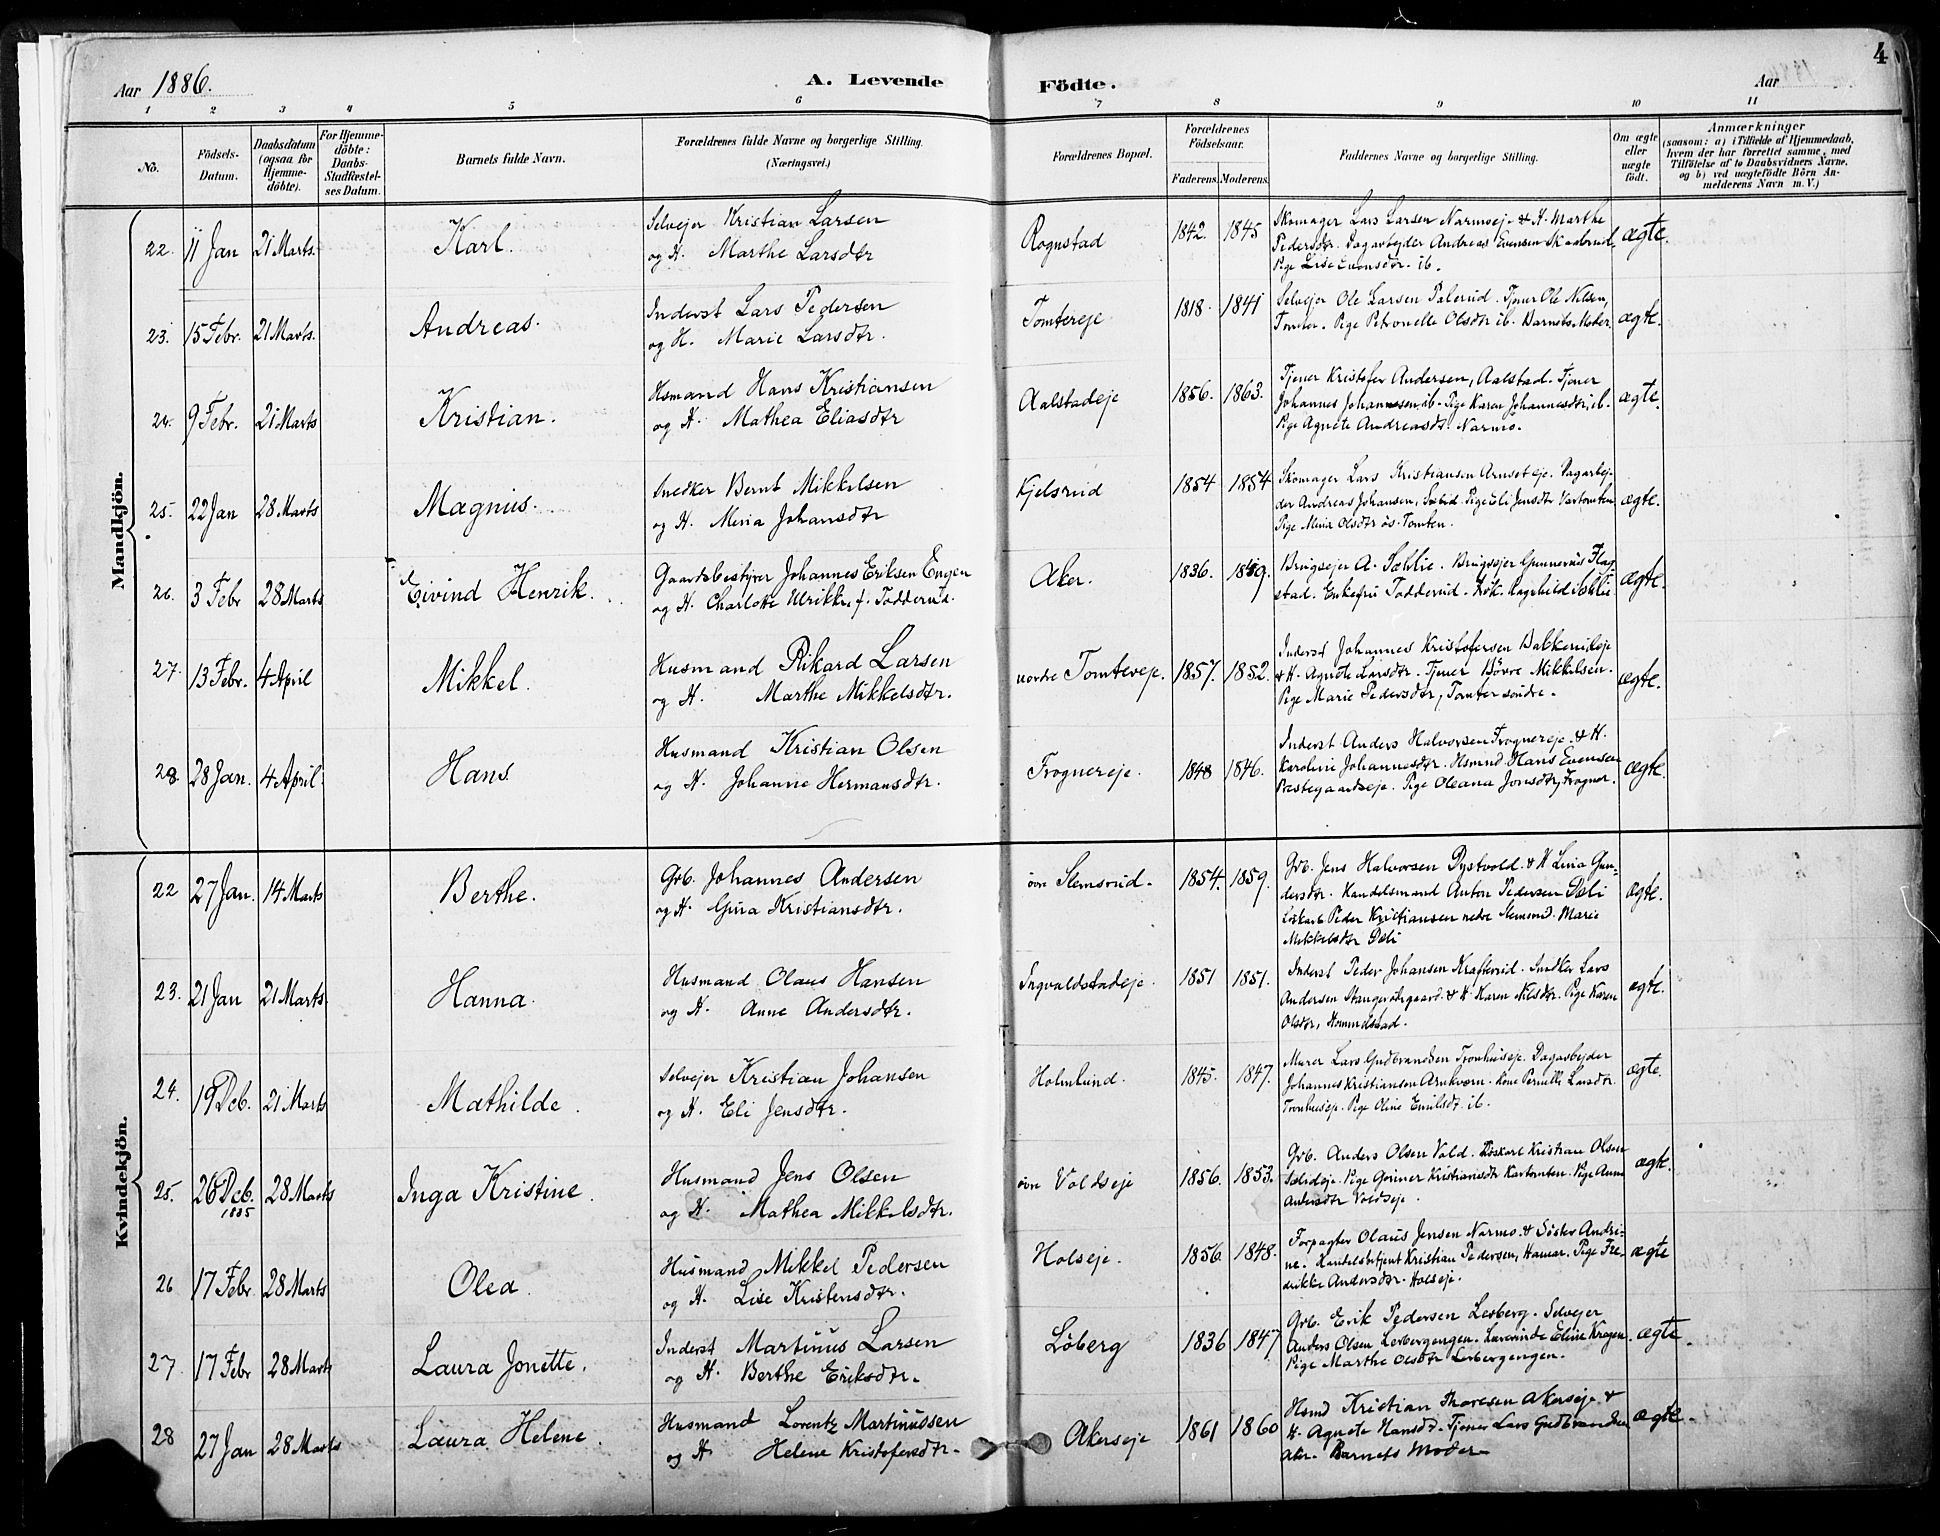 4
Aar 1886.
A. Levende Födte.
Aar
1 2 3 4 5 6 7 8 9 10 11
No.
Födsels-Datum.
Daabsdatum (ogsaa for Hjemme-döbte).
For Hjemme-döbte: Daabs-Stadfæstel-ses Datum.
Barnets fulde Navn.
Forældrenes fulde Navne og borgerlige Stilling. (Næringsvei.)
Forældrenes Bopæl.
Forældrenes Födselsaar.
Faderens. Moderens.
Faddernes Navne og borgerlige Stilling.
Om ægte eller uægte födt.
Anmærkninger
(saasom: a) i Tilfælde af Hjemmedaab,
hvem der har forrettet samme, med
Tilföielse af to Daabsvidners Navne,
og b) ved uægtefödte Börn An-
melderens Navn m. V.)
Mandkjön.
22. 11 Jan 21 Marts. Karl. Selvejer Kristian Larsen
og H. Marthe Larsdtr
Rognstad 1842. 1845 Skomager Lars Larsen Narmoeje & H. Marthe
Pedersdtr. Dagarbejder Andreas Evensen Skaabrud,
Pige Lise Evensdtr. ib.
ægte.
23. 15 Febr. 21 Marts. Andreas. Inderst Lars Pedersen
og H. Marie Larsdtr.
Tomtereje 1818. 1841 Selvejer Ole Larsen Palerud. Tjener Ole Nilsen,
Tomter. Pige Petronelle Olsdtr ib. Barnets Moder.
ægte.
24. 9 Febr. 21 Marts Kristian. Hsmand Hans Kristiansen
og H. Mathea Eliasdtr
Aalstadeje 1856. 1863. Tjener Kristofer Andersen, Aalstad. Tjener
Johannes Johannesen, ib. Pige Karen Johannesdtr, ib.
Pige Agnete Andreasdt. Narmo.
ægte.
25. 22 Jan 28 Marts Magnus. Snedker Bernt Mikkelsen
og H. Mina Johansdtr
Kjelsrud 1854 1854 Skomager Lars Kristiansen Arnseteje. Dagarbej-
der Andreas Johansen, Pige Eli Jensdtr
Pige Mina Olsdtr Tomten.
ægte.
26. 3 Febr 28 Marts Eivind Henrik. Gaardsbestyrer Johannes Eriksen Engen
og H. Charlotte Ulrikke f. Todderud.
Aker. 1836. 1859. Brugsejer A. Sæhlie. Brugsejer Gunnerius Flag-
stad. Enkefru Todderud. Frøk. Ragnhild Sæhlie
ægte.
27. 13 Febr. 4 April Mikkel. Husmand Rikard Larsen
og H. Marthe Mikkelsdtr.
nordre Tomtereje. 1857. 1852. Inderst Johannes Kristofersen Bakkerudeje
& H. Agnete Larsdtr. Tjener Børre Mikkelsen.
Pige Marie Pedersdtr, Tomter søndre.
ægte.
28. 28 Jan. 4 April. Hans. Husmand Kristian Olsen
og H. Johanne Hermansdtr.
Frognereje. 1848 1846. Inderst Anders Halvorsen Frognereje & H.
Karoline Johannesdtr. Hsmnd Hans Evensen
Præstegaardseje. Pige Oleana Jonsdtr, Frogner.
ægte.
Kvindekjön.
22 27 Jan. 14 Marts Berthe. Grb. Johannes Andersen
og H. Gura Kristiansdtr.
övre Slemsrud. 1854. 1859. Grb. Jens Halvorsen Dystvold & H Lina Gun-
dersdtr. Handelsmand Anton Pedersen Dæli
Löskarl Peder Kristiansen nedre Slemsrud. Marie
Mikkelsdtr Dæli
ægte.
23. 21 Jan 21 Marts Hanna. Husmand Olaus Hansen
og H. Anne Andersdtr.
Ingvaldstadeje. 1851 1851. Inderst Peder Johansen Krafterud. Snedker Lars
Andersen & H. Karen Nilsdtr. Pige Karen
Olsdtr, Hommelstad.
ægte.
24. 19 Deb. 21 Marts Mathilde. Selvejer Kristian Johansen
og H. Eli Jensdtr.
Holmlund. 1845. 1847. Murer Lars Gudbrandsen Tronhuseje. Dagarbejder
Johannes Kristiansen Arnkværn. Kone Pernille Larsdtr.
Tronhuseje. Pige Oline Emilsdt. ib.
ægte.
25. 26 Deb. 1885 28 Marts Inga Kristine. Husmand Jens Olsen
og H. Mathea Mikkelsdtr.
övre Voldseje 1856. 1853. Grb. Anders Olsen Vold. Löskarl Kristian Olsen
Pige Kristiansdtr Pige Anne
Andersdtr Voldseje.
ægte.
26 17 Febr. 28 Marts Olea. Husmand Mikkel Pedersen
og H. Lise Kristensdtr.
Holseje. 1856. 1848. Forpagter Olaus Jensen Narmo & Söster Andri-
ne. Handelsbetjent Kristian Pedersen, Hamar. Pige Fre-
drikke Andersdtr. Holseje.
ægte
27. 17 Febr 28 Marts Laura Jonette. Inderst Martinus Larsen
og H. Berthe Eriksdtr.
Löberg 1836 1847 Grb. Erik Pedersen Løberg. Selvejer
Anders Olsen Lærerinde Eline Kragen.
Pige Marthe Olsdtr
ægte
28 27 Jan 28 Marts Laura Helene. Husmand Lorentz Martinussen
og H Helene Kristofersdtr.
Akerseje 1861 1860 Hsmd Kristian Thoresen Akerseje &
H. Agnete Hansdt. Tjener Lars Gudbrandsen
Aker. Barnets Moder
ægte.